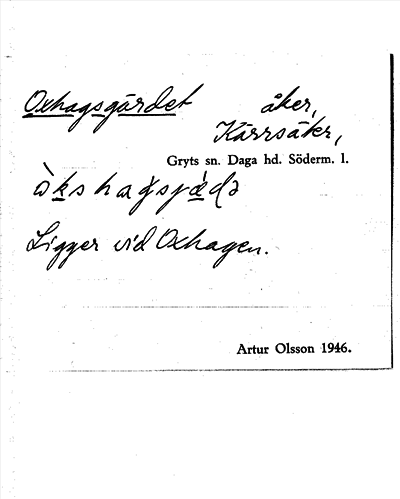 Oxhagsgärdet åker,
Kärrsåker,
Gryts sn. Daga hd. Söderm. l.
Ligger vid Oxhagen.
Artur Olsson 1946.